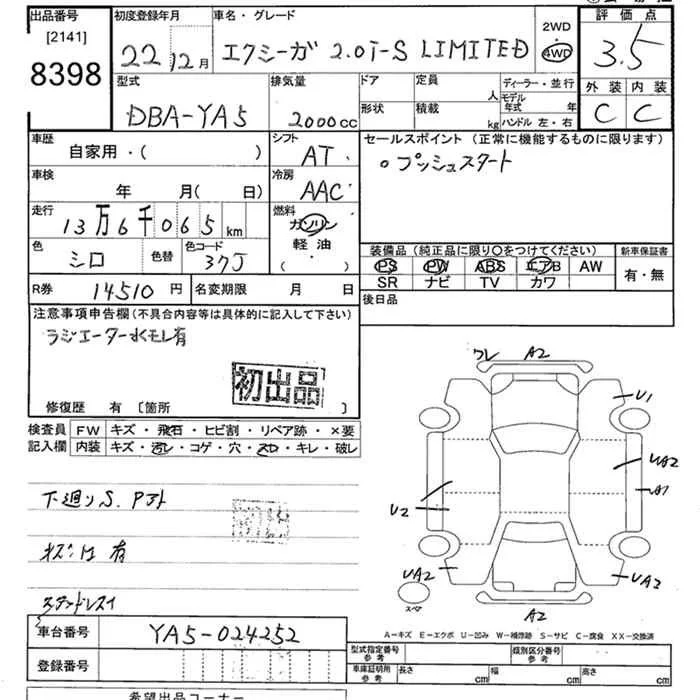 出品番号
[2141]
8398
初度登録年月
22 12月
車名・グレード
エクシーガ 2.0i-S LIMITED
2WD
4WD
評価点
3.5
型式
DBA-YA5
排気量
2000cc
ドア
形状
定員
人
積載
kg
ディーラー・並行
モデル
年式
年
ハンドル 左・右
外装 内装
C C
車歴
自家用・( )
シフト
AT
セールスポイント (正常に機能するものに限ります)
○プッシュスタート
車検
年 月( 日)
冷房
AAC
走行
13万6千065km
燃料
ガソリン
軽油
( ・ )
色
シロ
色替
色コード
37J
装備品(純正品に限り○をつけてください)
PS PW ABS エアB AW
SR ナビ TV カワ
新車保証書
有・無
R券
14510円
名変期限
月 日
後日品
注意事項申告欄(不具合内容等は具体的に記入して下さい)
ラジエーター水モレ有
初出品
修復歴 有 [箇所 ]
検査員
記入欄
FW キズ・飛石・ヒビ割・リペア跡・×要
内装 キズ・汚レ・コゲ・穴・スレ・キレ・破レ
下廻りS.
有
ワレ A2
U1
UA2
A1
U2
UA2
UA2
スペア
A2
A-キズ E-エクボ U-凹み W-補修跡 S-サビ C-腐食 XX-交換済
車台番号
YA5-024252
登録番号
型式指定番号
参考
類別区分番号
参考
車庫証明用
参考
長さ cm
幅 cm
高さ cm
希望出品コーナー